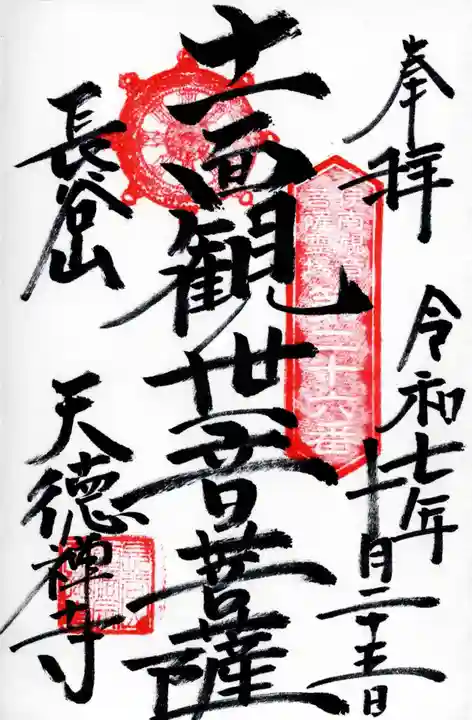 奉拝 令和七年十月二十五日
十一面観世音菩薩
長谷山 天徳禅寺
第三十六番